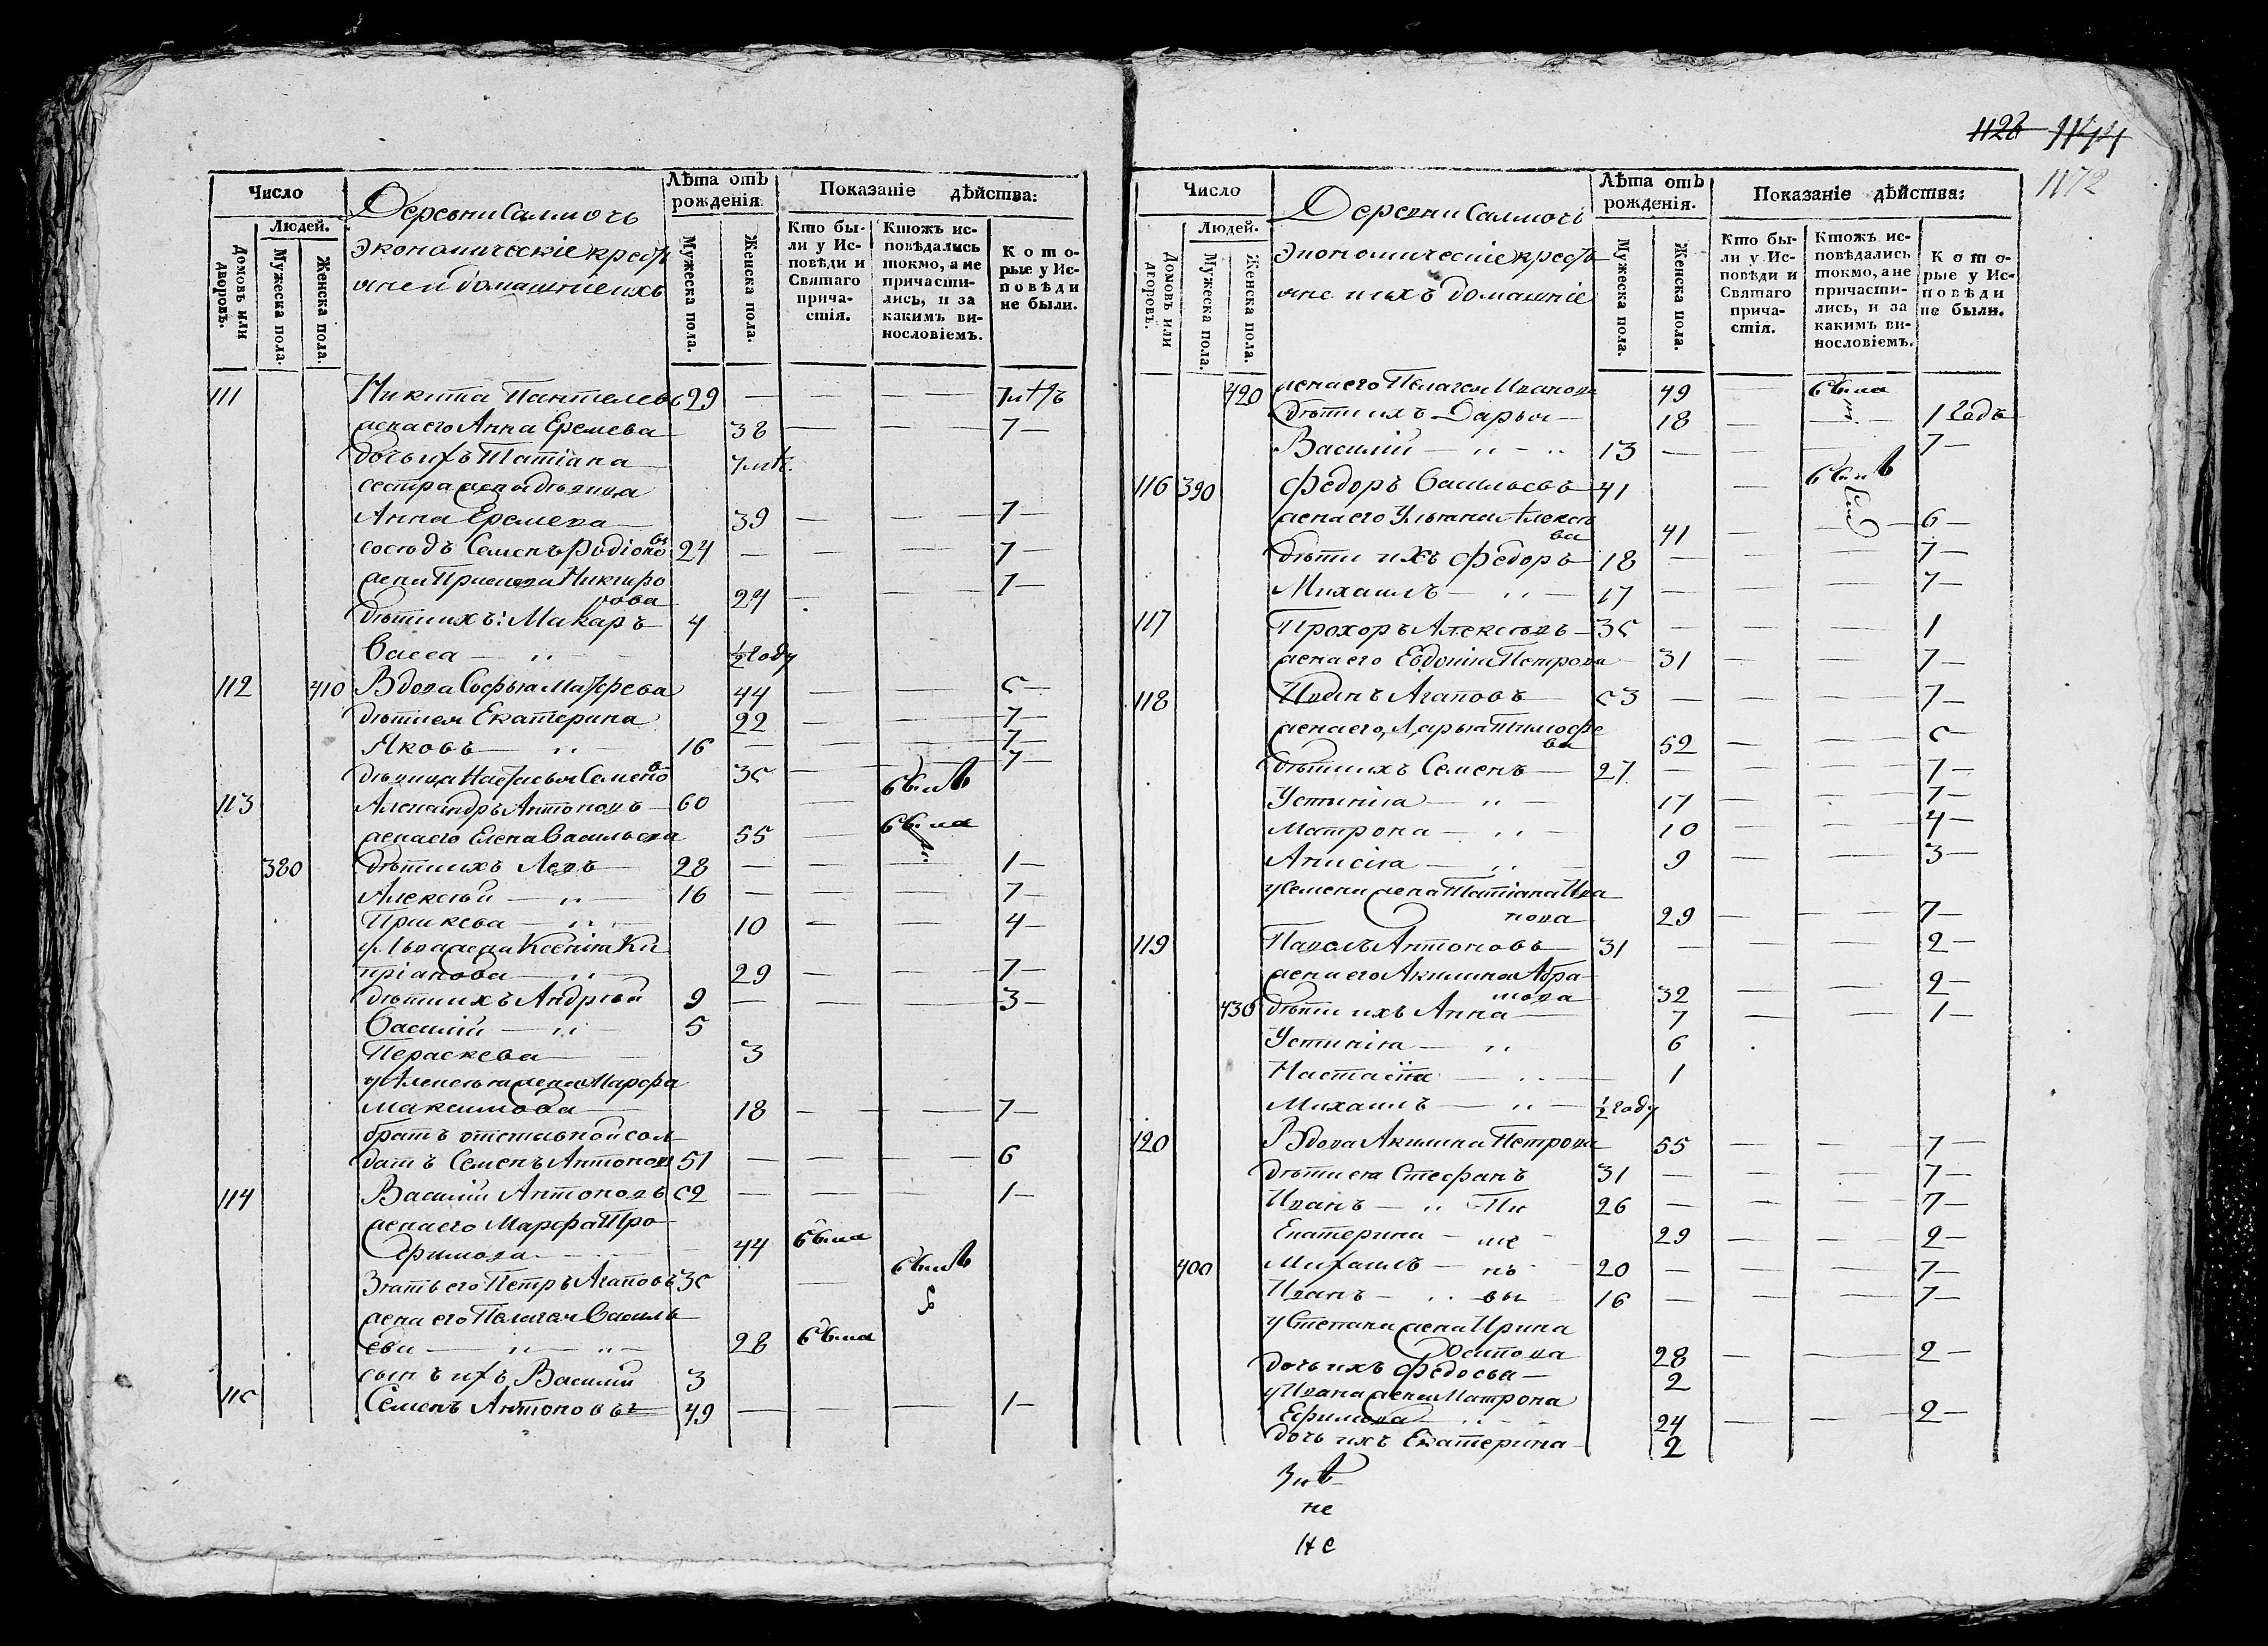 1126 1144
1172
Число
Людей.
Домовъ или дворовъ.
Мужеска пола.
Женска пола.
Деревни Салмочь
экономическіе кресть
яне и домашние ихъ
Лѣта отъ рожденія.
Мужеска пола.
Женска пола.
Показаніе дѣйства:
Кто бы-
ли у Ис-
повѣди и
Святаго
прича-
стія.
Ктожъ ис-
повѣдались
токмо, а не
причасти-
лись, и за
какимъ ви-
нословіемъ.
Кото-
рые у Ис-
повѣди
не были.
111 Никита Пантелеевъ 29 — — — 7 лѣтъ
жена его Анна Еремева 38 — — 7 —
дочь ихъ Татіана 7 лѣтъ
сестра жены дѣвица
Анна Еремева — 39 — — 7 —
соседъ Семенъ Родіоновъ 24 — — — 7 —
жена Никифо
рова 24 — — 7 —
дѣти ихъ: Макаръ 4
Васса — „ — ½ году
112 410 Вдова Софья Матфева 44 — — 5 —
дѣти ея Екатерина 22 — — 7 —
Яковъ — „ — 16 — — — 7 —
дѣвица Настасья Семено 35 — — 7 —
113 Александръ Антоновъ — 60 — былъ
жена его Елена Васильева 55 — была
380 дѣти ихъ Левъ — 28 — — — 1 —
Алексѣй — „ — 16 — — — 7 —
Праскева — „ — 10 — — 4 —
у Льва жена Ксенія Ки
пріанова — „ — 29 — — 7 —
дѣти ихъ Андрей 9 — — — 3 —
Василій — „ — 5
Пераскева — 3
у Алексѣя жена Марфа
Максимова — 18 — — — 7 —
братъ отставной сол
датъ Семенъ Антоновъ 51 — — — 6
114 Василій Антоновъ 52 — — — 1 —
жена его Марфа Тро
фимова — 44 была
Зять его Петръ Агаповъ 35 — былъ
жена его Пелагея Василь
ева — „ — „ — 28 была
сынъ ихъ Василій 3
115 Семенъ Антоновъ 49 — — — 1 —
Число
Людей.
Домовъ или дворовъ.
Мужеска пола.
Женска пола.
Деревни Салмочь
экономическіе кресть
яне и ихъ домашніе
Лѣта отъ рожденія.
Мужеска пола.
Женска пола.
Показаніе дѣйства:
Кто бы-
ли у Ис-
повѣди и
Святаго
прича-
стія.
Ктожъ ис-
повѣдались
токмо, а не
причасти-
лись, и за
какимъ ви-
нословіемъ.
Кото-
рые у Ис-
повѣди
не были.
420 жена его Пелагея Иванова 49 — была
дѣти ихъ Дарья — 18 — — 1 годъ
Василій — „ — „ 13 — — 7 —
116 390 Федоръ Васильевъ 41 — былъ
жена его Ульяния Алексѣ
ва 41 — — 6 —
дѣти ихъ Федоръ — 18 — — — 7 —
Михаилъ — „ — 17 — — — 7 —
117 Прохоръ Алексѣевъ — 35 — — — 1
жена его Евдокія Петрова 31 — — 7 —
118 Иванъ Агаповъ — 53 — — — 7 —
жена его Дарья Тимофе
ва 52 — — 5 —
дѣти ихъ Семенъ — 27 — — — 7 —
Устинія — „ — 17 — — 7 —
Матрона — „ — 10 — — 4 —
Анисія — „ — 9 — — 3 —
у Семена жена Татіана Ива
нова 29 — — — 7 —
119 Павелъ Антоновъ — 31 — — — 2 —
жена его Акилина Абра
мова 32 — — 2 —
430 дѣти ихъ Анна — 7 — — 1 —
Устинія — „ 6
Настасія — „ — 1
Михаилъ — „ — ½ году
120 Вдова Акилина Петрова 55 — — 7 —
дѣти ея Стефанъ 31 — — — 7 —
Иванъ — „ Пи 26 — — — 7 —
Екатерина — ме — 29 — — 2 —
400 Михаилъ — нъ — 20 — — — 7 —
Иванъ — „ вы 16 — — — 7 —
у Степана жена Ирина
Осипова 28 — — 2 —
дочь ихъ Федосья — 2
у Ивана жена Матрона
Ефимова — „ — 24 — — 2 —
дочь ихъ Екатерина — 2
не
не